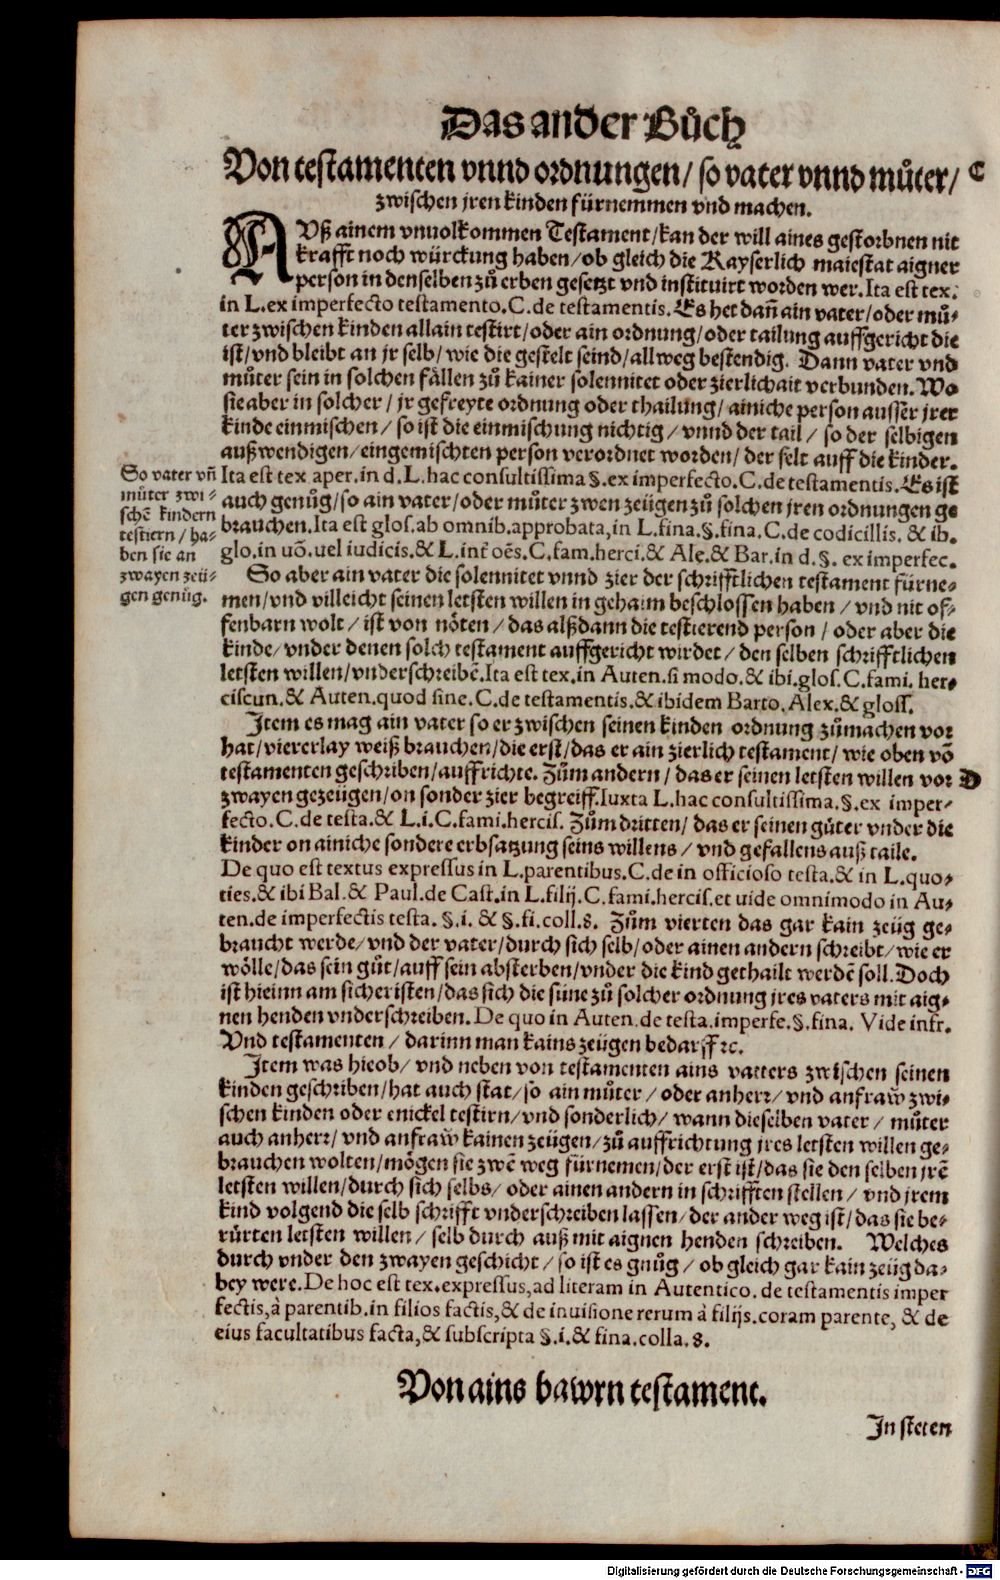 Das ander Bůch
Von testamenten vnnd ordnungen/ so vater vnnd můter/ C
zwischen jren kinden fürnemmen vnd machen.
AVß ainem vnuolkommen Testament/kan der will aines gestorbnen nit
krafft noch würckung haben/ob gleich die Kayserlich maiestat aigner
person in denselben zů erben gesetzt vnd instituirt worden wer. Ita est tex.
in L.ex imperfecto testamento.C.de testamentis. Es het dañ ain vater/oder mů-
ter zwischen kinden allain testirt/oder ain ordnung/oder tailung auffgericht die
ist/vnd bleibt an jr selb/wie die gestelt seind/allweg bestendig. Dann vater vnd
můter sein in solchen fällen zů kainer solennitet oder zierlichait verbunden. Wo
sie aber in solcher/ jr gefreyte ordnung oder thailung/ainiche person ausser jrer
kinde einmischen/ so ist die einmischung nichtig/vnnd der tail/ so der selbigen
außwendigen/eingemischten person verordnet worden/ der felt auff die kinder.
So vater vñ
můter zwi-
schē kindern
testiern/ha-
ben sie an
zwayen zeü-
gen genůg.
Ita est tex aper.in d.L.hac consultissima §.ex imperfecto.C.de testamentis. Es ist
auch genůg/so ain vater/oder můter zwen zeügen zů solchen jren ordnungen ge
brauchen. Ita est glos.ab omnib.approbata,in L.fina.§.fina.C.de codicillis. & ib.
glo.in uō.uel iudicis.& L.int̄ oēs.C.fam.herci.& Ale.& Bar.in d.§.ex imperfec.
So aber ain vater die solennitet vnnd zier der schrifftlichen testament fürne-
men/vnd villeicht seinen letsten willen in gehaim beschlossen haben/vnd nit of-
fenbarn wolt/ ist von nöten/das alßdann die testierend person/ oder aber die
kinde/vnder denen solch testament auffgericht wirdet/den selben schrifftlichen
letsten willen/vnderschreibē.Ita est tex.in Auten.si modo.& ibi.glos.C.fami. her-
ciscun.& Auten.quod sine.C.de testamentis.& ibidem Barto.Alex.& gloss.
Item es mag ain vater so er zwischen seinen kinden ordnung zůmachen vor
hat/viererlay weiß brauchen/die erst/das er ain zierlich testament/wie oben vō
testamenten geschriben/auffrichte. Zům andern/das er seinen letsten willen vor D
zwayen gezeügen/on sonder zier begreiff.Iuxta L.hac consultissima.§.ex imper-
fecto.C.de testa.& L.i.C.fami.hercis. Zům dritten/das er seinen güter vnder die
kinder on ainiche sondere erbsatzung seins willens/vnd gefallens auß taile.
De quo est textus expressus in L.parentibus.C.de in officioso testa.& in L.quo-
ties.& ibi Bal.& Paul.de Cast.in L.filij.C.fami.hercis.et uide omnimodo in Au-
ten.de imperfectis testa. §.i. & §.fi.coll.8. Zům vierten das gar kain zeüg ge-
braucht werde/vnd der vater/durch sich selb/oder ainen andern schreibt/wie er
wölle/das sein gůt/auff sein absterben/vnder die kind gethailt werdē soll. Doch
ist hieinn am sicheristen/das sich die süne zů solcher ordnung jres vaters mit aig-
nen henden vnderschreiben. De quo in Auten.de testa.imperfe.§.fina. Vide infr.
Vnd testamenten/ darinn man kains zeügen bedarff ꝛc.
Item was hieob/vnd neben von testamenten ains vatters zwischen seinen
kinden geschriben/hat auch stat/so ain můter/ oder anherr/vnd anfraw̃ zwi-
schen kinden oder enickel testirn/vnd sonderlich/ wann dieselben vater/ můter
auch anherr/vnd anfraw̃ kainen zeügen/zů auffrichtung jres letsten willen ge-
brauchen wolten/mögen sie zwē weg fürnemen/der erst ist/das sie den selben jrē
letsten willen/durch sich selbs/oder ainen andern in schrifften stellen/ vnd jrem
kind volgend die selb schrifft vnderschreiben lassen/der ander weg ist/das sie be-
rürten letsten willen/ selb durch auß mit aignen henden schreiben. Welches
durch vnder den zwayen geschicht/so ist es gnůg/ ob gleich gar kain zeüg da-
bey were. De hoc est tex.expressus,ad literam in Autentico.de testamentis imper
fectis,à parentib.in filios factis,& de inuisione rerum à filijs.coram parente, & de
eius facultatibus facta,& subscripta §.i.& fina.colla.8.
Von ains bawrn testament.
In steten
Digitalisierung gefördert durch die Deutsche Forschungsgemeinschaft - DFG